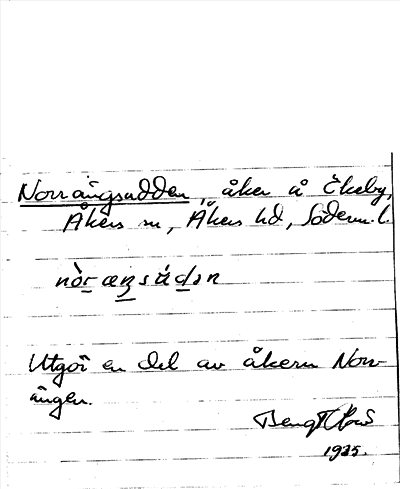 Norrängsudden, åker å Ekeby,
Åkers sn, Åkers hd, Söderm. l.
nòræŋsúdən
Utgör en del av åkern Norr-
ängen.
Bengt
1935.